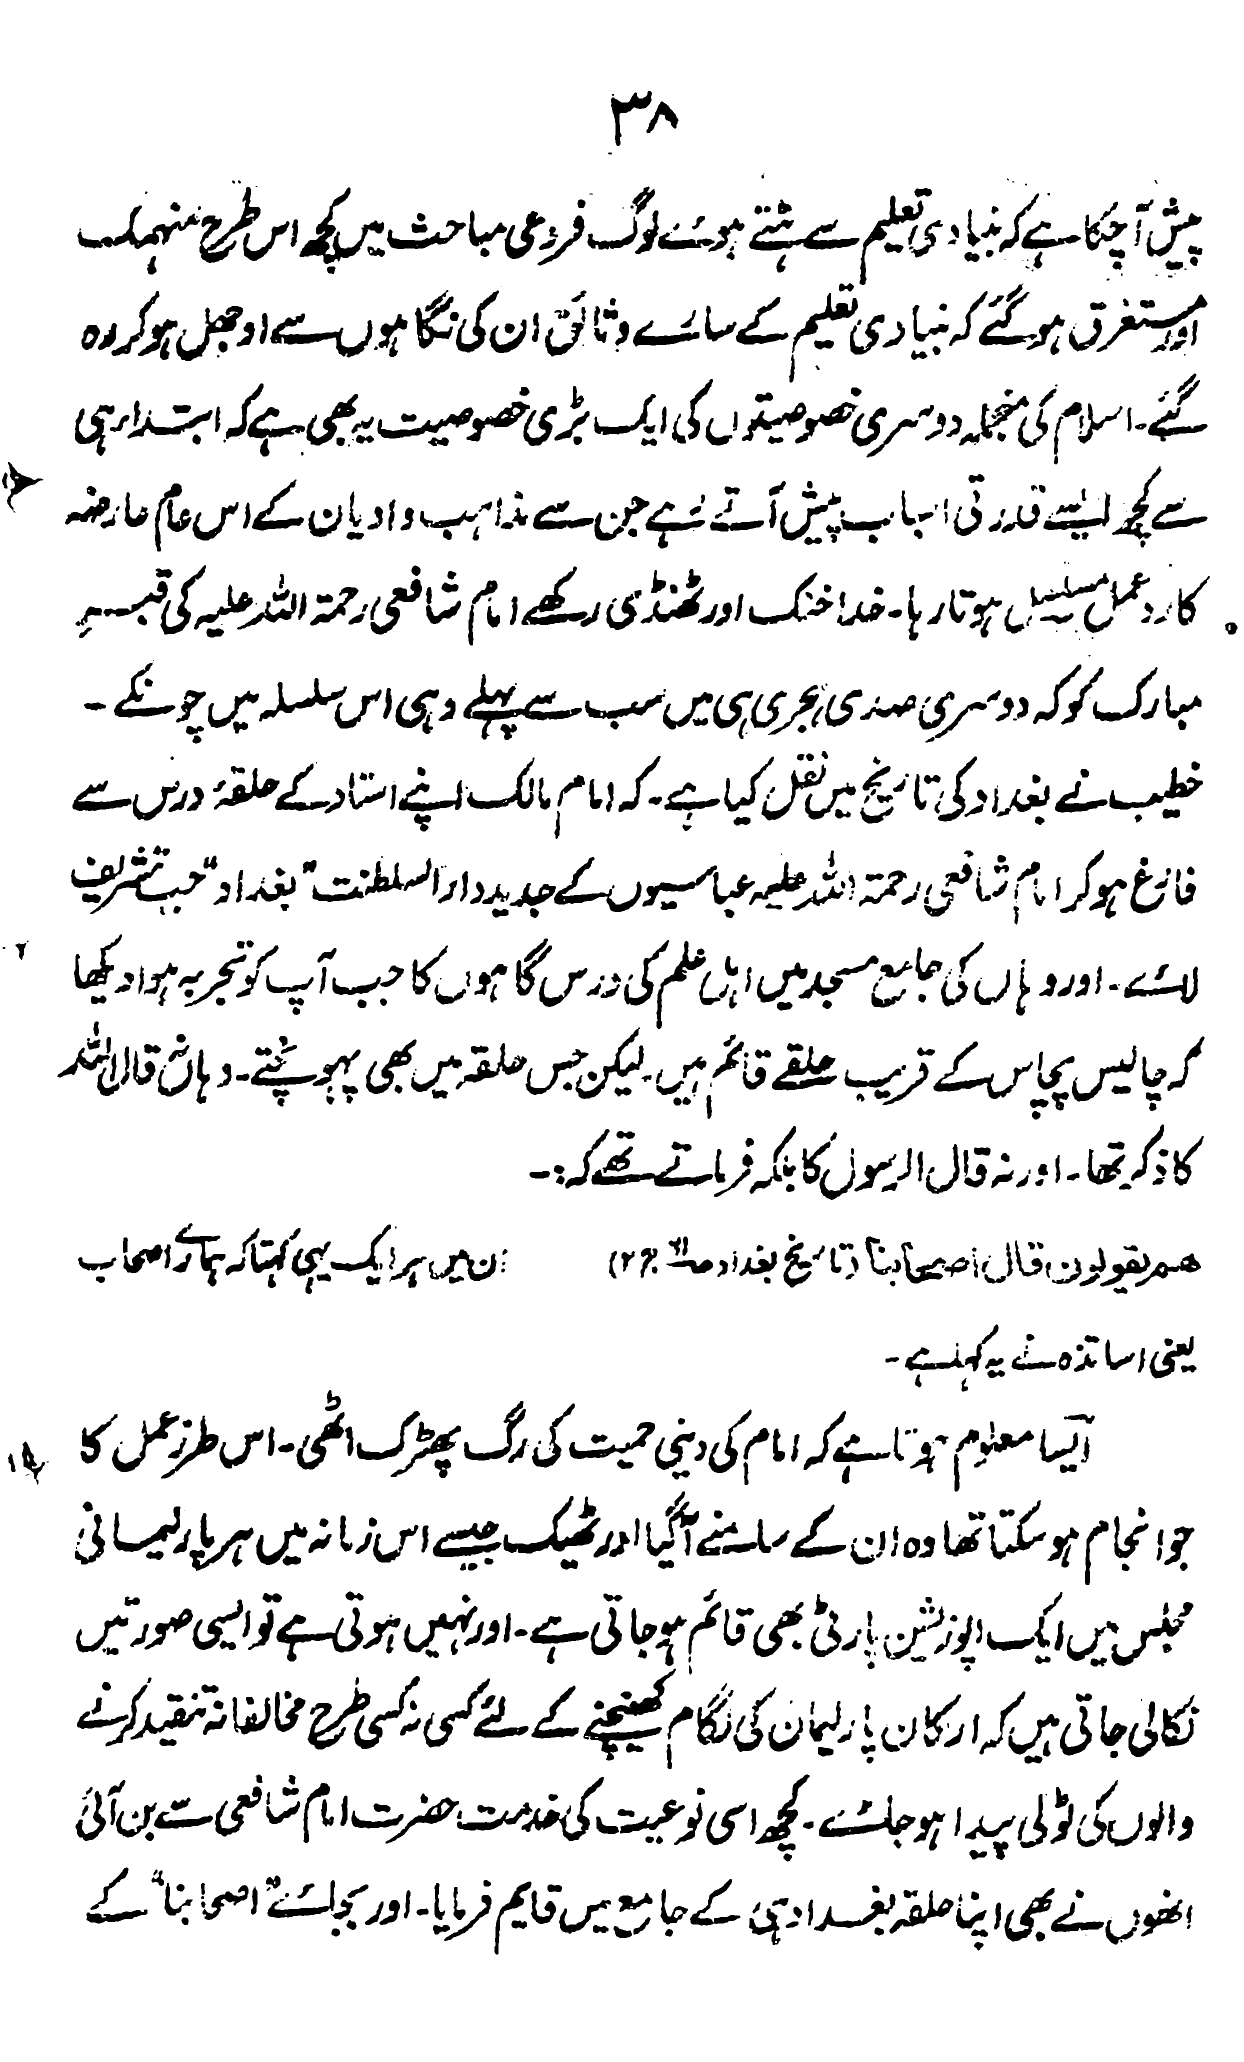 ۳۸
پیش آچکا ہے کہ بنیادی تعلیم سے ہٹتے ہوئے لوگ فروعی مباحث میں کچھ اس طرح منہمک
اور مستغرق ہو گئے کہ بنیادی تعلیم کے سارے وثائق ان کی نگاہوں سے اوجھل ہو کر رہ
گئے۔ اسلام کی منجملہ دوسری خصوصیتوں کی ایک بڑی خصوصیت یہ بھی ہے کہ ابتداء ہی
سے کچھ ایسے قدرتی اسباب پیش آتے رہے جن سے مذاہب و ادیان کے اس عام عارضہ
کا رد عمل مسلسل ہوتا رہا۔ خدا خنک اور ٹھنڈی رکھے امام شافعی رحمۃ اللہ علیہ کی قبر
مبارک کو کہ دوسری صدی ہجری ہی میں سب سے پہلے وہی اس سلسلہ میں چونکے۔
خطیب نے بغداد کی تاریخ میں نقل کیا ہے۔ کہ امام مالک اپنے استاد کے حلقۂ درس سے
فارغ ہو کر امام شافعی رحمۃ اللہ علیہ عباسیوں کے جدید دار السلطنت "بغداد" جب تشریف
لائے۔ اور وہاں کی جامع مسجد میں اہل علم کی درس گاہوں کا جب آپ کو تجربہ ہوا دیکھا
کہ چالیس پچاس کے قریب حلقے قائم ہیں۔ لیکن جس حلقہ میں بھی پہونچتے۔ وہاں نہ قال اللہ
کا ذکر تھا۔ اور نہ قال الرسول کا بلکہ فرماتے تھے کہ:۔
هم يقولون قال اصحابنا (تاریخ بغداد ج ۲) ان میں ہر ایک یہی کہتا کہ ہمارے اصحاب
یعنی اساتذہ نے یہ کہا ہے۔
ایسا معلوم ہوتا ہے کہ امام کی دینی حمیت کی رگ پھڑک اٹھی۔ اس طرز عمل کا
جو انجام ہو سکتا تھا وہ ان کے سامنے آگیا اور ٹھیک جیسے اس زمانہ میں ہر پارلیمانی
مجلس میں ایک اپوزیشن پارٹی بھی قائم ہو جاتی ہے۔ اور نہیں ہوتی ہے تو ایسی صورتیں
نکالی جاتی ہیں کہ ارکان پارلیمان کی لگام کھینچنے کے لئے کسی نہ کسی طرح مخالفانہ تنقید کرنے
والوں کی ٹولی پیدا ہو جائے۔ کچھ اسی نوعیت کی خدمت حضرت امام شافعی سے بن آئی
انھوں نے بھی اپنا حلقہ بغداد ہی کے جامع میں قایم فرمایا۔ اور بجائے "اصحابنا" کے